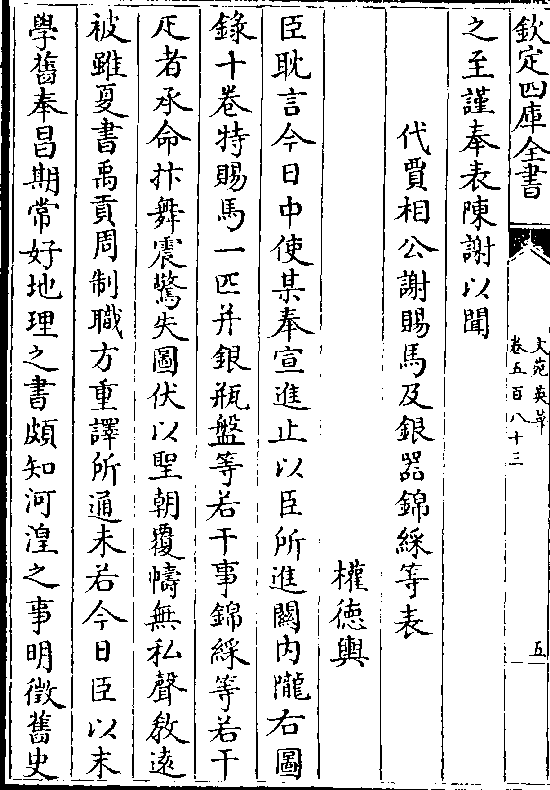 欽定四庫全書
文苑英華
卷五百八十三
五
之至謹奉表陳謝以聞
代賈相公謝賜馬及銀器錦綵等表
權德輿
臣耽言今日中使某奉宣進止以臣所進關内隴右圖
錄十卷特賜馬一匹并銀瓶盤等若干事錦綵等若干
疋者承命抃舞震驚失圖伏以聖朝覆幬無私聲敎遠
被雖夏書禹貢周制職方重譯所通未若今日臣以末
學舊奉昌期常好地理之書頗知河湟之事明徵舊史